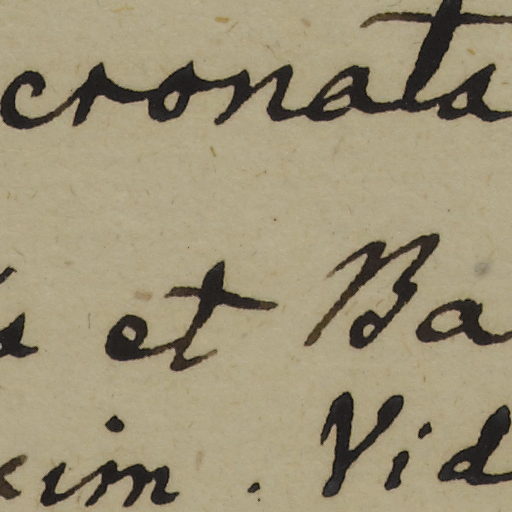 cronata
s et Ba
xim. Vid